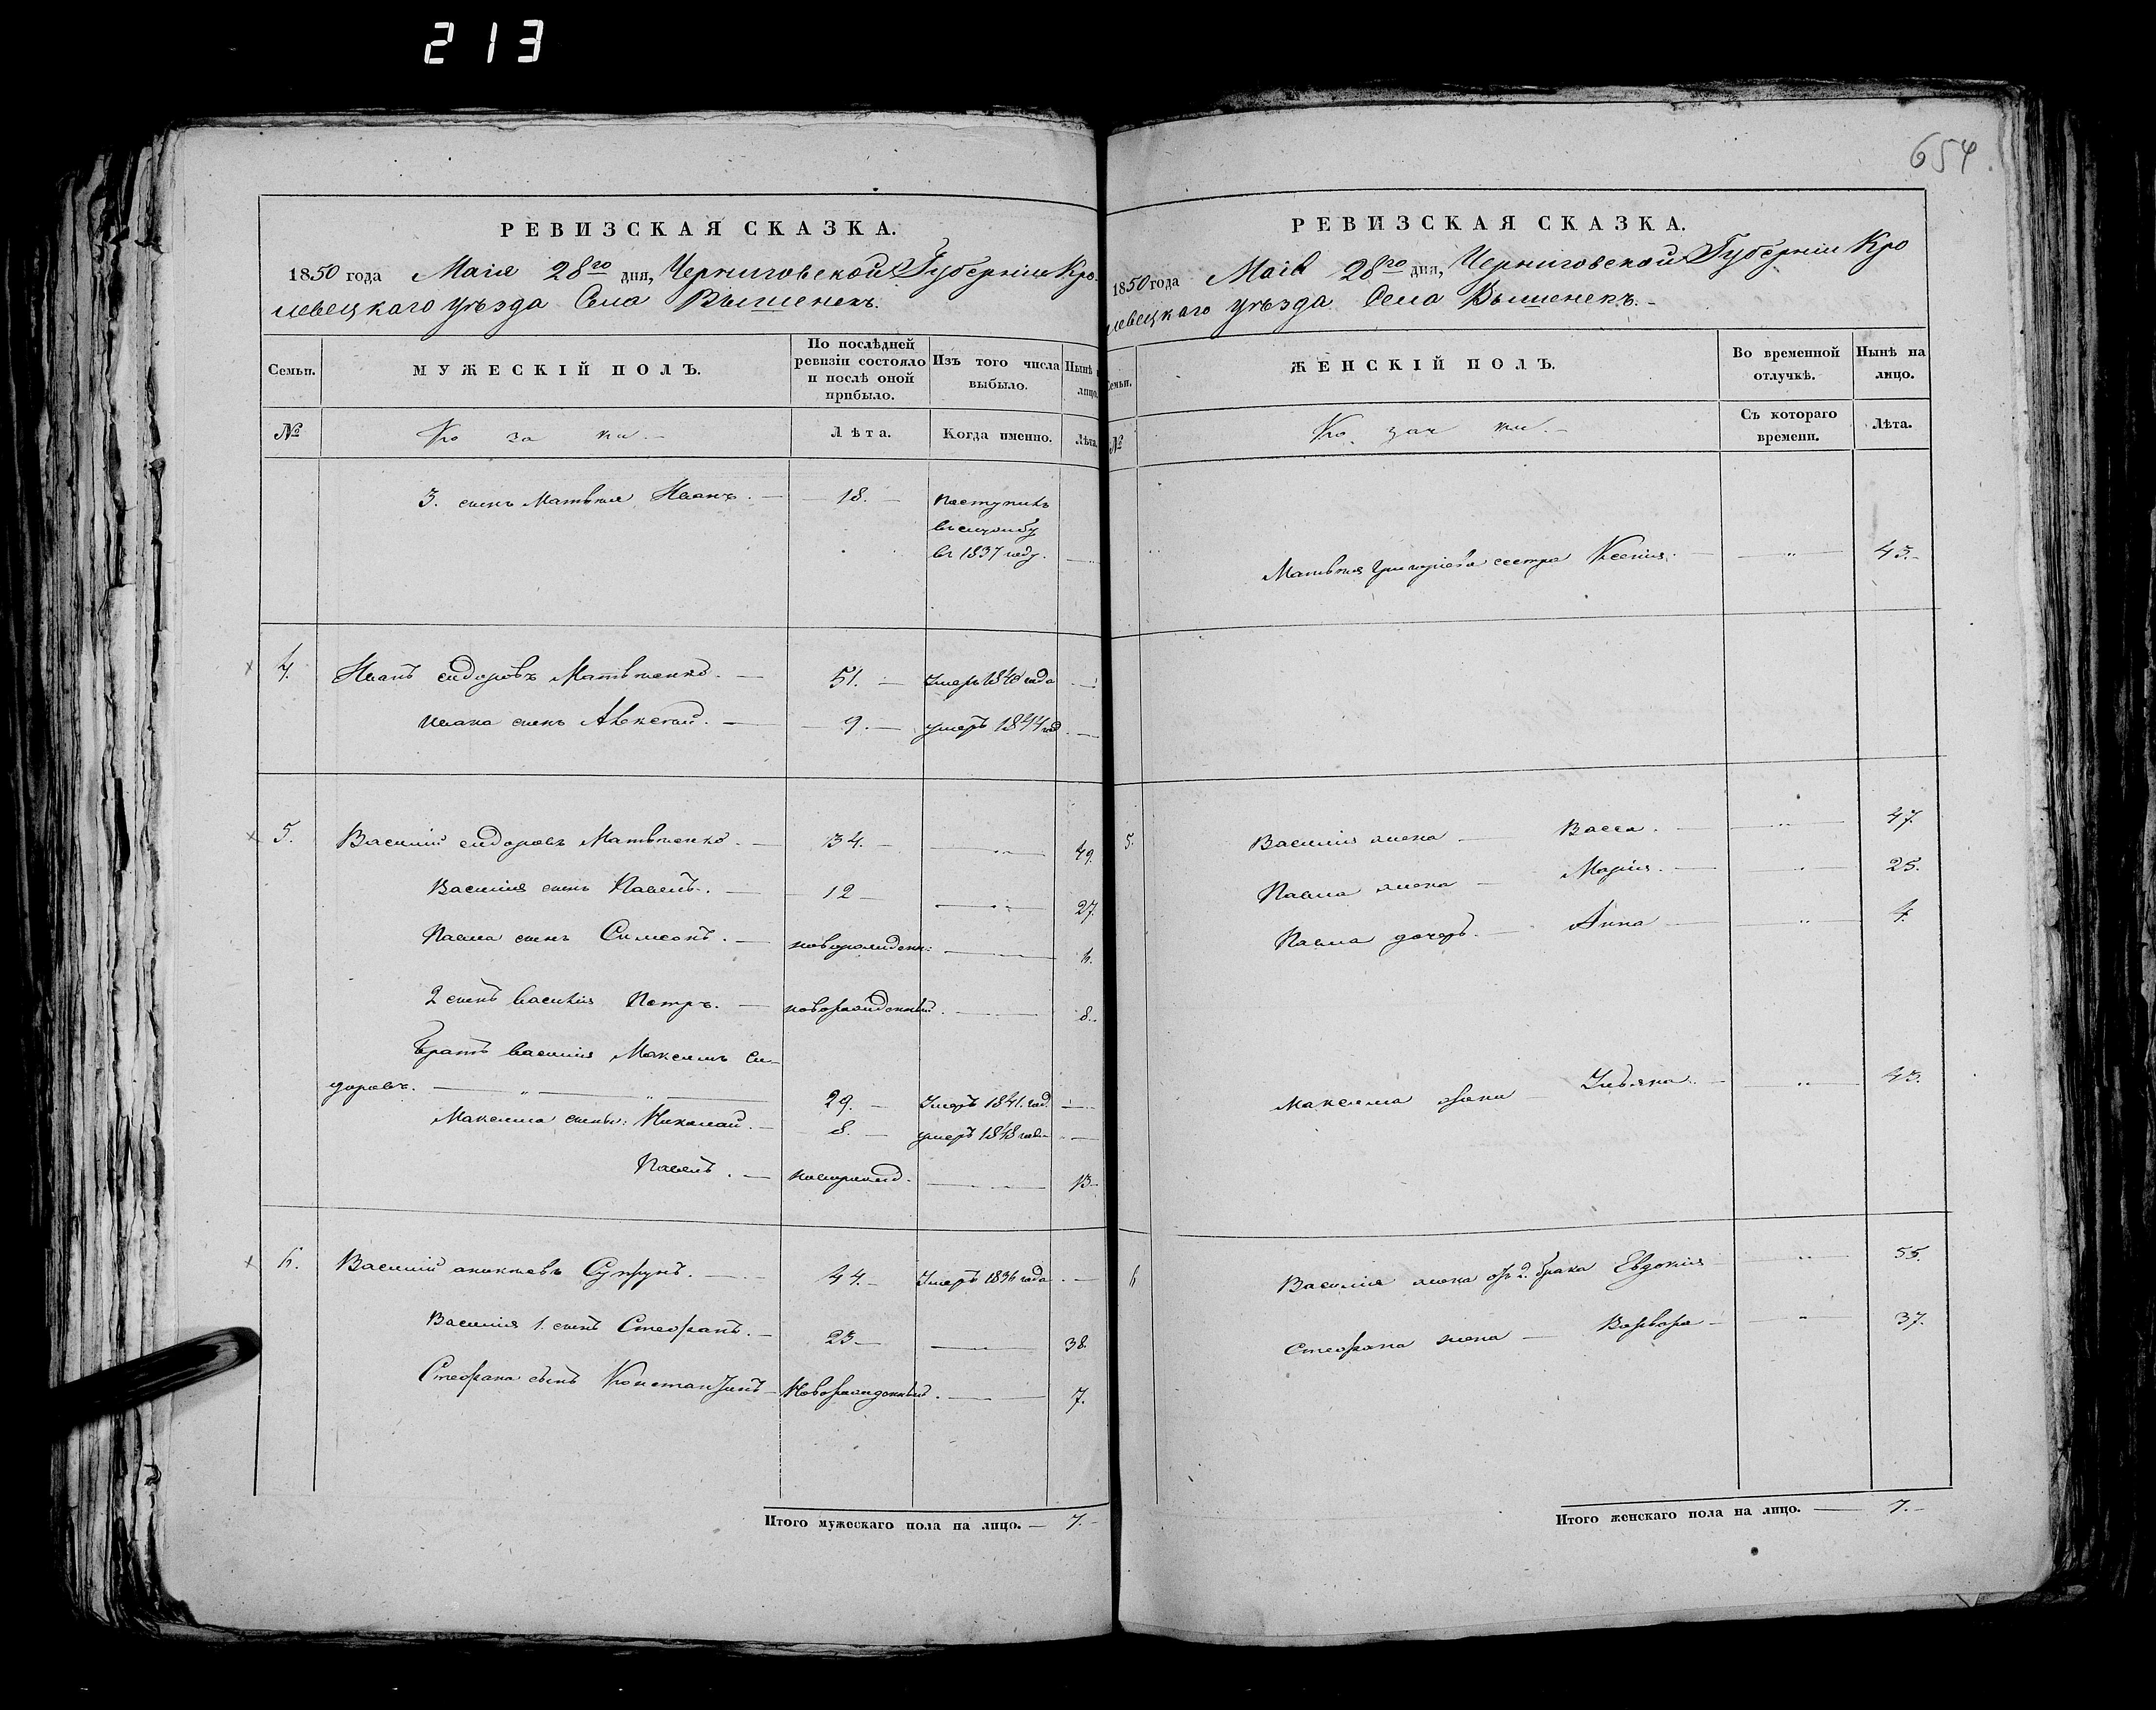 213
654.
РЕВИЗСКАЯ СКАЗКА.
1850 года Маія 28го дня, Черниговской Губерніи Кро-
левецкаго уѣзда Села Вышенекъ.
Семьи.
МУЖЕСКІЙ ПОЛЪ.
По послѣдней ревизіи состояло и послѣ оной прибыло.
Изъ того числа выбыло.
Нынѣ на лицо.
№
Ко за ки.
Лѣта.
Когда именно.
Лѣта.
3. сынъ Матвѣя Иванъ. — 18. —
Поступилъ
въ службу
въ 1837 году.
4. Иванъ сидоровъ Матвѣенко. — 51. — Умеръ 1840 года —
Ивана сынъ Алексѣй. — 9. — умеръ 1844 год. —
5. Василій сидоровъ Матвѣенко. — 34. — — „ — 49.
Василія сынъ Павелъ. — 12 — — „ — 27.
Павла сынъ Симеонъ. — новорожден: — 6.
2 сынъ Василія Петръ. — новорожденный. — 8.
Братъ василія Максимъ Си-
доровъ. — „ — „ — 29. — Умеръ 1841. год. —
Максима сыны: Николай. — 8. — умеръ 1848 года —
Павелъ. — новорожд. — 13
6. Василій аникѣевъ Супрунъ. — 44. — Умеръ 1836 года. —
Василія 1. сынъ Стефанъ. — 23 — — 38.
Стефана сынъ Константинъ — Новорожденный. — 7.
Итого мужескаго пола на лицо. — 7. —
РЕВИЗСКАЯ СКАЗКА.
1850 года Маія 28го дня, Черниговской Губерніи Кро
левецкаго уѣзда Села Вышенекъ. —
Семьи.
ЖЕНСКІЙ ПОЛЪ.
Во временной отлучкѣ.
Нынѣ на лицо.
№
Ко зач ки. —
Съ котораго времени.
Лѣта.
Матвѣя Григоріева сестра Ксенія. — „ — 43. —
5. Василія жена — Васса. — „ — 47.
Павла жена — Марія. — „ — 25.
Павла дочерь. — Анна — „ — 4.
Максима жена Ульяна. — „ — 43.
6 Василія жена отъ 2. брака Евдокія — „ — 55.
Стефана жена — Варвара — „ — 37.
Итого женскаго пола на лицо. — 7. —